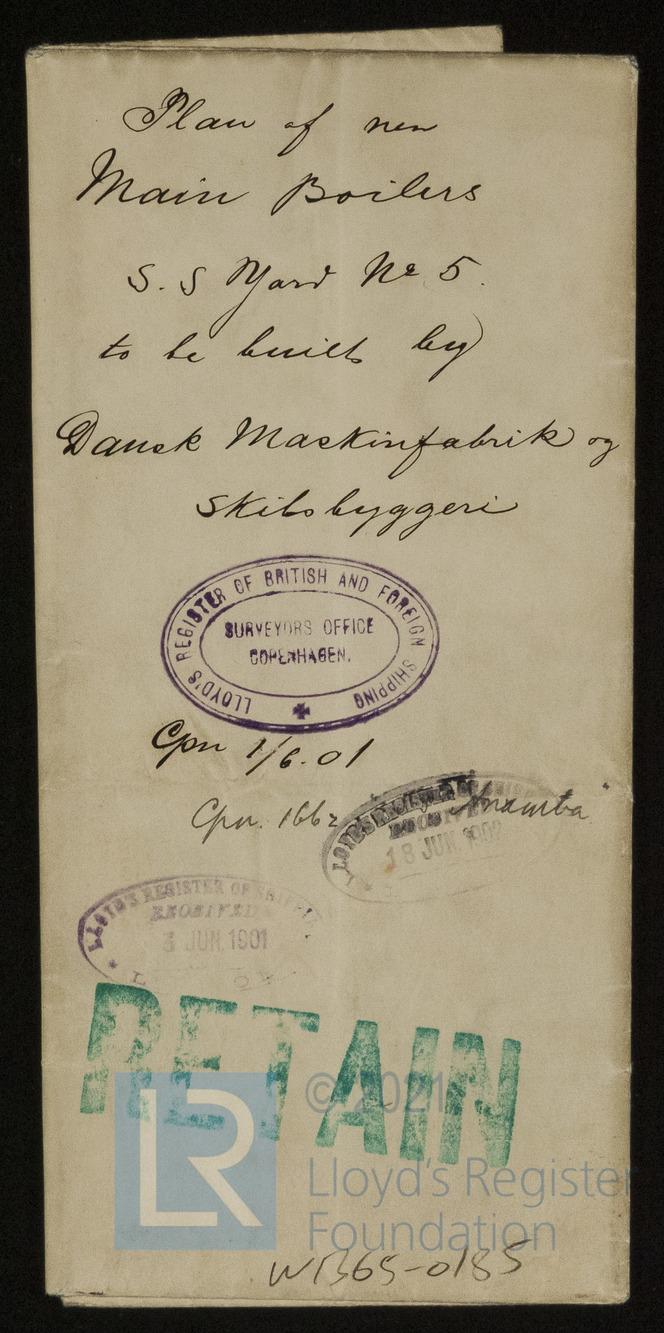 Plan of new
Main Boilers
S.S Yard No 5.
to be built by
Dansk Maskinfabrik og
Skibsbyggeri
LLOYD'S REGISTER OF BRITISH AND FOREIGN SHIPPING
SURVEYORS OFFICE
COPENHAGEN.
Cpn 1/6.01
Cpn. 1662 "Anamba"
LLOYD'S REGISTER OF
RECEIVED
18 JUN 1902
LLOYD'S REGISTER OF SHIPPING
RECEIVED
3 JUN 1901
RETAIN
LR
© 2021
Lloyd's Register
Foundation
WB65-0185